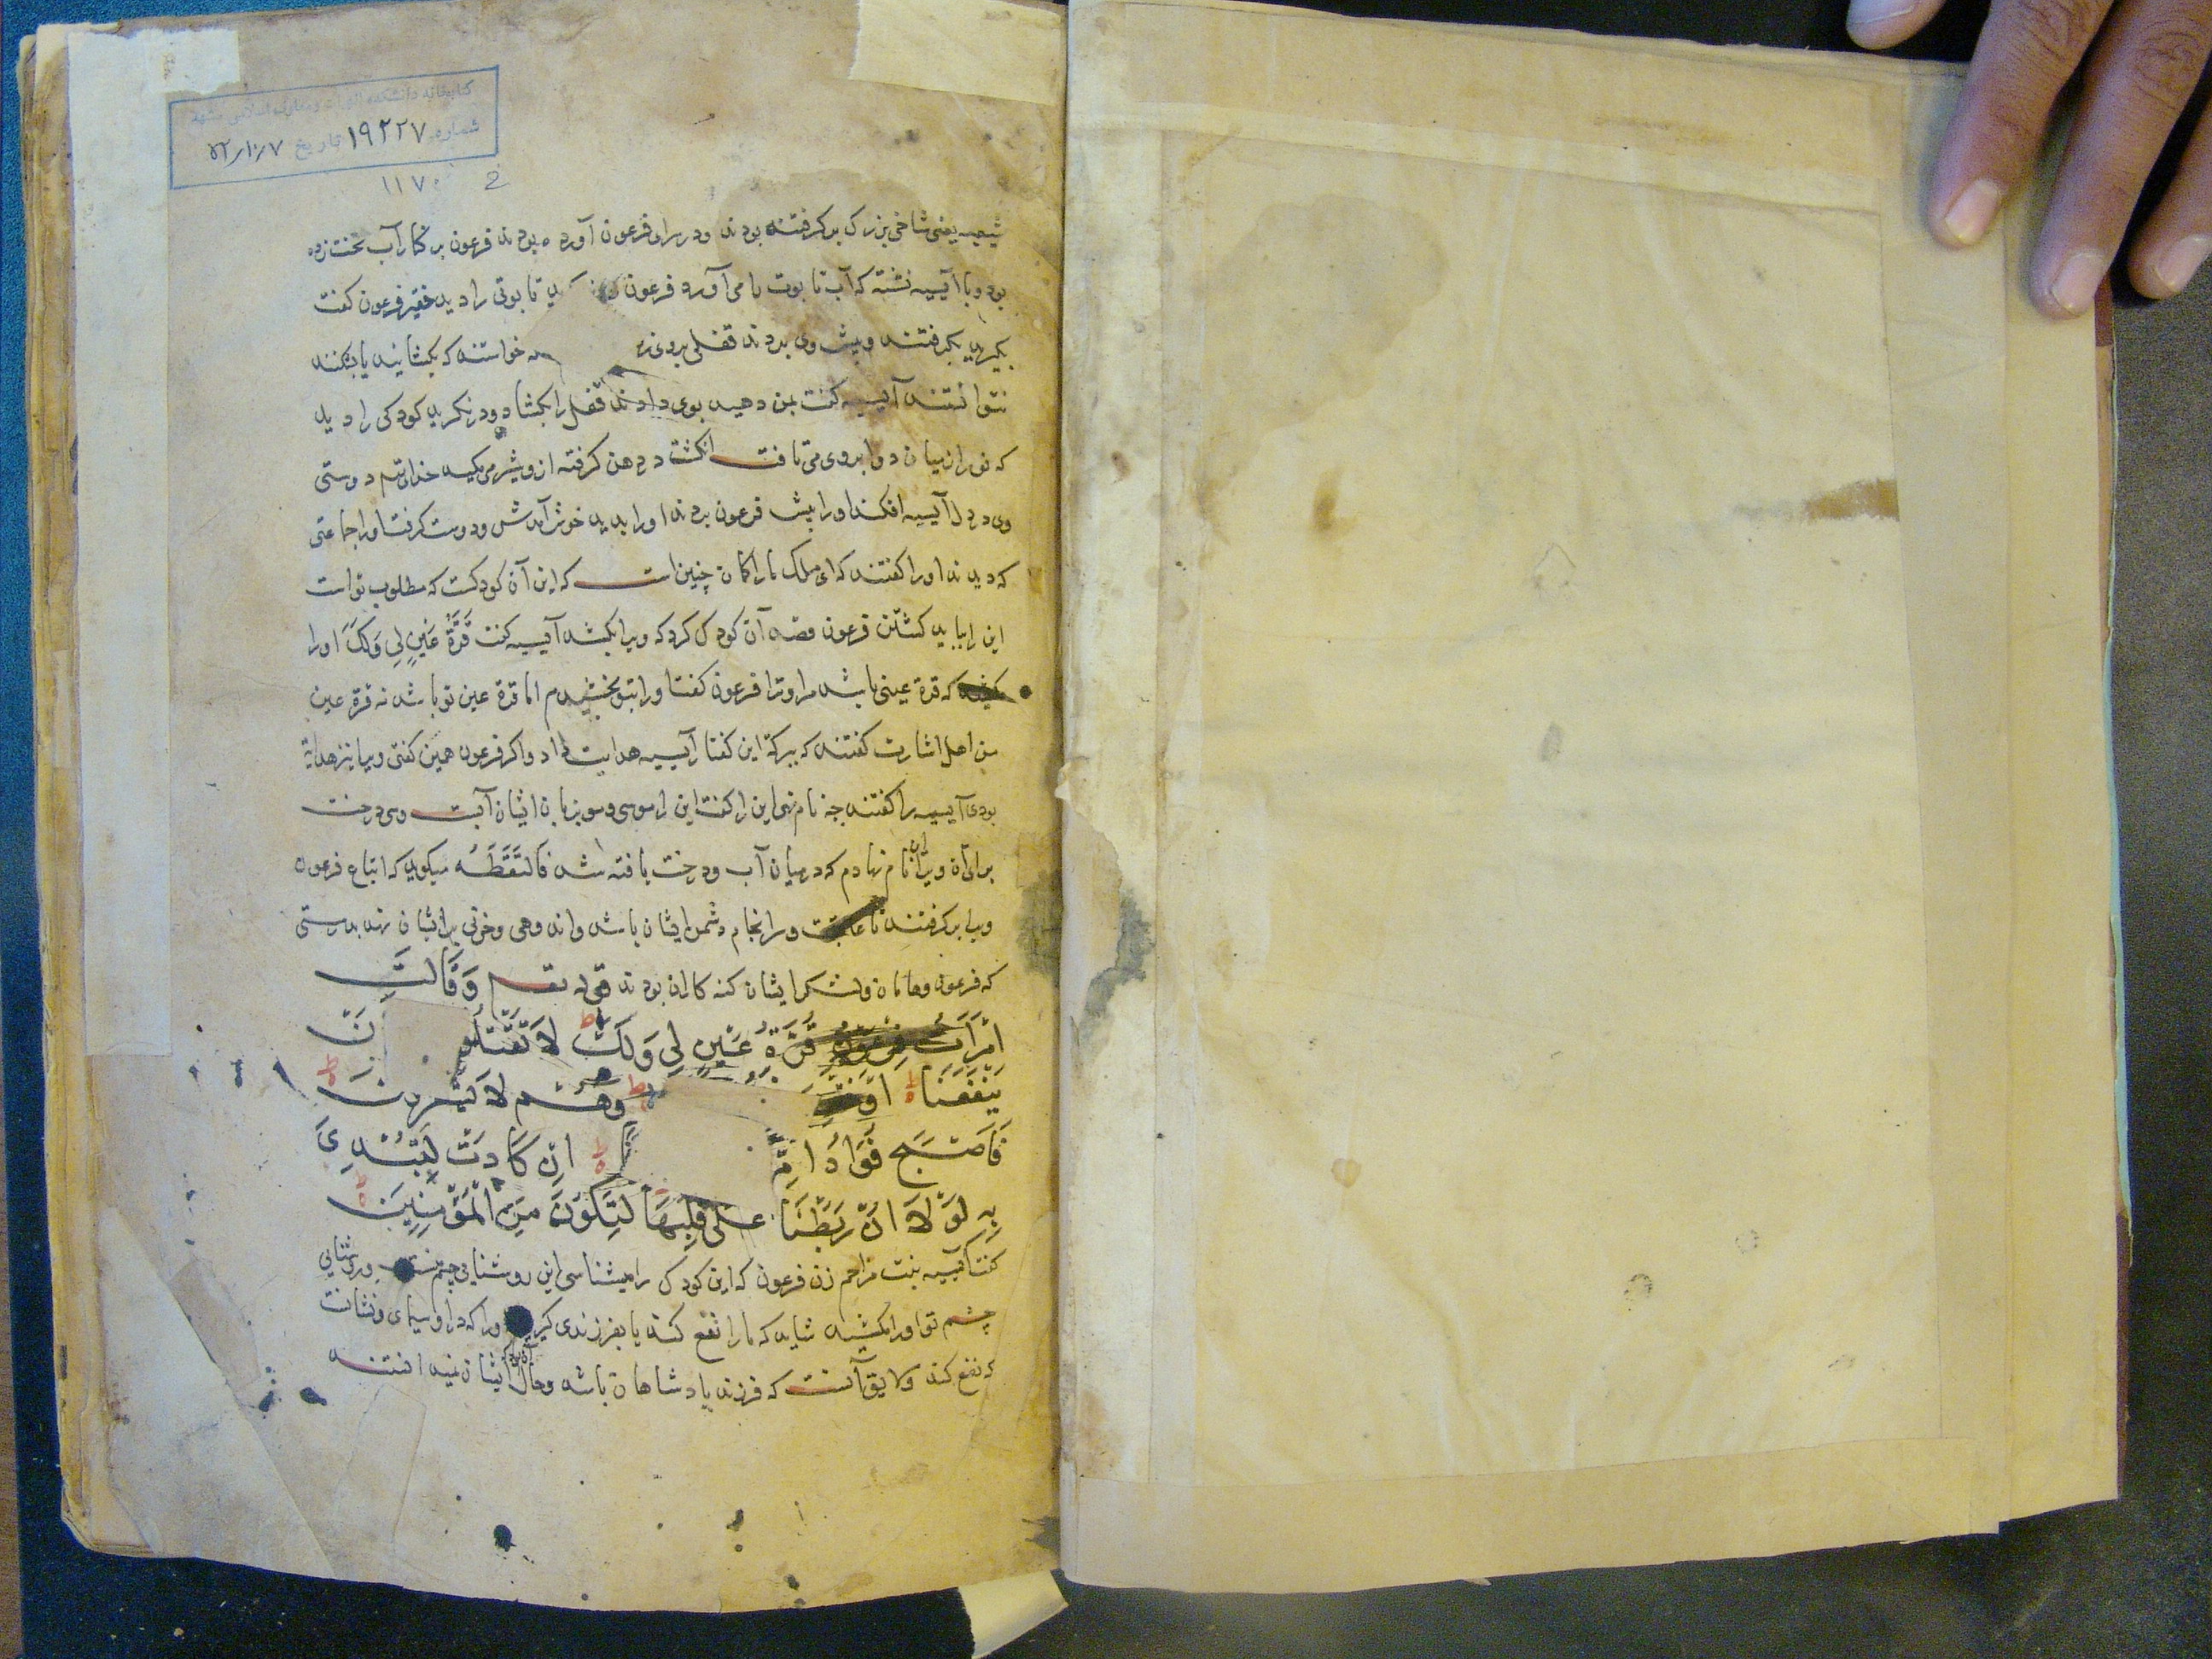 کتابخانه دانشکده الهیات و معارف اسلامی مشهد
شماره ۱۹۲۲۷ تاریخ
۱۱۷۰
یعنی شاخی بزرک برکرفته بودند و در سرای فرعون آورده بودند فرعون بر کنار آب تخت زده
بود و با آسیه نشسته که آب تابوت را می آورد فرعون تابوتی را دید فرعون کفت
بکیرید بکرفتند و پیش وی بردند قفلی بر وی خواستند که بکشایند یا بشکنند
نتوانستند آسیه کفت بمن دهید بوی دادند قفل را بکشاد و در نکرید کودکی را دید
که نور از میان دو ابروی می تافت انکشت در دهن کرفته از و شیر می مکید خدای تع دوستی
وی در دل آسیه افکند او را پیش فرعون بردند او را بدید خوش آمدش و دوست کرفت او را جماعتی
که دیدند او را کفتند که ای ملک ما را کمان چنین است که این آن کودکست که مطلوب تو است
این را بباید کشتن فرعون قصد آن کودک کرد که ویرا بکشد آسیه کفت قُرَّةُ عَيْنٍ لِي وَلَكَ او را
که قرة عینی باشد مرا و ترا فرعون کفت او را بتو بخشیدم اما قرة عین تو باشد نه قرة عین
من اهل اشارت کفتند که ببرکة این کفتار آسیه هدایت داد و اکر فرعون همین کفتی ویرا نیز هدایة
بودی آسیه را کفتند چه نام نهی این را کفت این را موسی و مو بزبان ایشان آبست و سی درخت
برای آن ویرا این نام نهادم که در میان آب و درخت یافته شد فَالْتَقَطَهُ میکوید که اتباع فرعون
ویرا برکرفتند تا عاقبت و سرانجام دشمن ایشان باشد و اندوهی و حزنی برایشان نهد بدرستی
که فرعون و هامان و لشکر ایشان کنه کاران بودند قوله تع وَقَالَتِ
امْرَأَتُ فِرْعَوْنَ قُرَّةُ عَيْنٍ لِي وَلَكَ لَا تَقْتُلُو
يَنْفَعَنَا أَوْ وَهُمْ لَا يَشْعُرُونَ
فَأَصْبَحَ فُؤَادُ أُمِّ إِنْ كَادَتْ لَتُبْدِي
بِهِ لَوْلَا أَنْ رَبَطْنَا عَلَى قَلْبِهَا لِتَكُونَ مِنَ الْمُؤْمِنِينَ
کفت آسیه بنت مزاحم زن فرعون که این کودک را میشناسی این روشنایی چشم منست و روشنایی
چشم تو او را مکشید شاید که ما را نفع کند یا بفرزندی کیریم او را که در او سیمای و نشانست
که نفع کند و لایق آنست که فرزند پادشاهان باشد و حال ایشان نمی دانستند